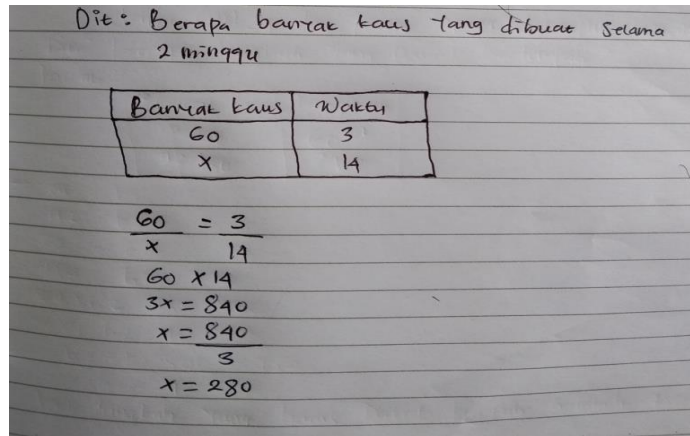 Dit : Berapa banyak kaus yang dibuat selama
2 minggu
Banyak kaus Waktu
60 3
x 14
60 = 3
x 14
60 x 14
3x = 840
x = 840
3
x = 280